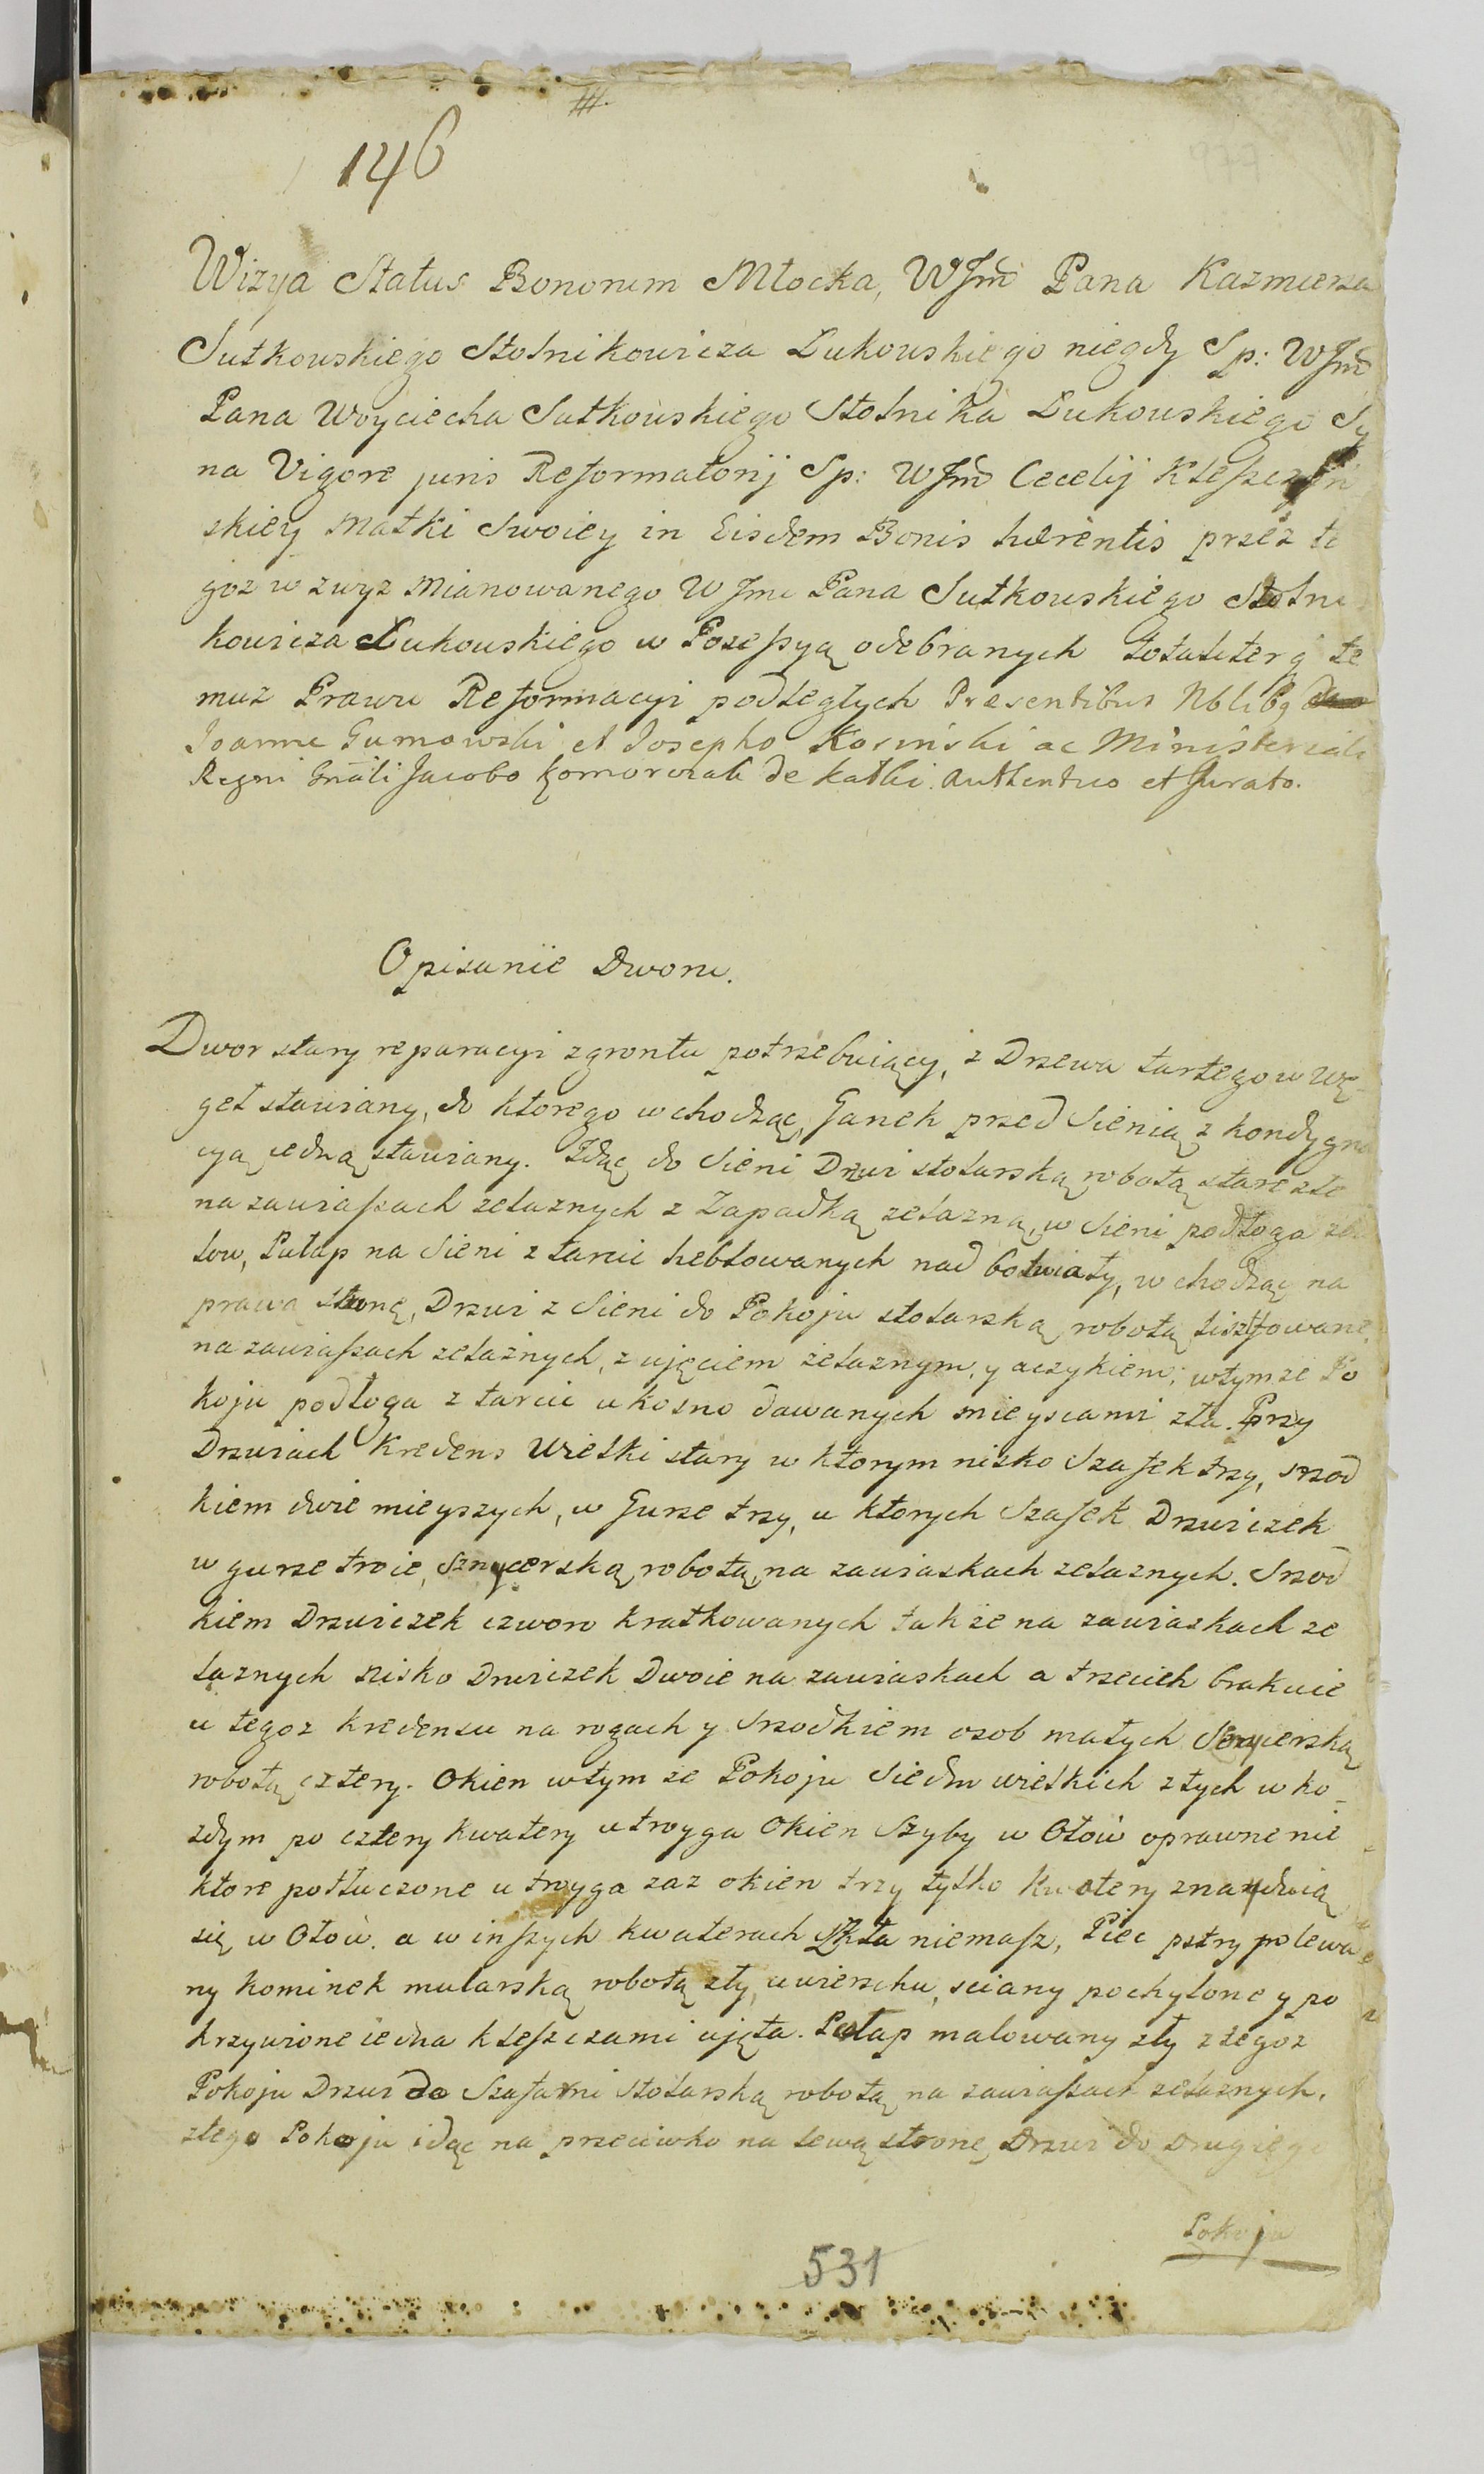 146
Wizya Status Bonorum Młocka, WJmci Pana Kazmierza
Sutkowskiego Stolnikowicza Łukowskiego niegdy Sp: WJmci
Pana Woyciecha Sutkowskiego Stolnika Łukowskiego Sy
na Vigore juris Reformatorij Sp: WJmci Cecelij Kleszczyń
skiey Matki Swoiey in Eisdem Bonis hærentis przez te
goz w zwyz Mianowanego WJmci Pana Sutkowskiego Stolni
kowicza Łukowskiego w Posessyą odebranych totaliter q te
muz Prawu Reformacyi podległych Præsentibus Nblibq
Joanne Gumowski et Josepho Kosinski ac Ministeriali
Regni Gnali Jacobo Komorczak de Katki Authentico et Jurato.
Opisanie Dworu.
Dwor stary reparacyi zgrontu potrzebuiący, z Drzewa tartego w Wę-
geł stawiany, do ktorego wchodząc, Ganek przed Sienią z kondygna
cyą iedną stawiany. Idąc do Sieni Drzwi stolarską robotą stare złe
na zawiassach zelaznych z Zapadką zelazną, w Sieni podłoga
low, Pułap na Sieni z tarcic heblowanych nad botwiały, w chodząc na
prawą stronę, Drzwi z Sieni do Pokoju stolarską robotą lisztfowane
na zawiassach zelaznych, z ujęciem zelaznym, y aczykiem, wtymze Po
koju podłoga z tarcic ukosno dawanych mieyscami zła. Przy
Drzwiach Kredens Wielki stary w ktorym nisko Szafek trzy, srzod
kiem dwie mieyszych, w Gurze trzy, u ktorych Szafek Drzwiczek
w gurze troie, Sznycerską robotą, na zawiaskach zelaznych. Srzod
kiem Drzwiczek czworo kratkowanych takze na zawiaskach ze
laznych nisko Drwiczek Dwoie na zawiaskach a trzecich brakuie
u tegoz kredensu na rogach y Srzodkiem osob małych Snycerską
robotą cztery. Okien wtym ze Pokoju Siedm wielkich złych w ko-
zdym po cztery kwatery utroyga Okien Szyby w Ołow oprawne nie
ktore potłuczone u troyga zaz okien trzy tylko kwatery znayduią
się w Ołow. a w inszych kwaterach Szkła niemasz, Piec pstry polewa
ny kominek mularską robotą zły, u wierzchu, sciany pochylone y po
krzywione iedna kleszczami ujęta. Pułap malowany zły z tegoz
Pokoju Drzwi do Szafarni stolarską robotą na zawiassach zelaznych.
z tego Pokoju idąc na przeciwko na lewą stronę, Drzwi do Drugiego
Pokoju
531